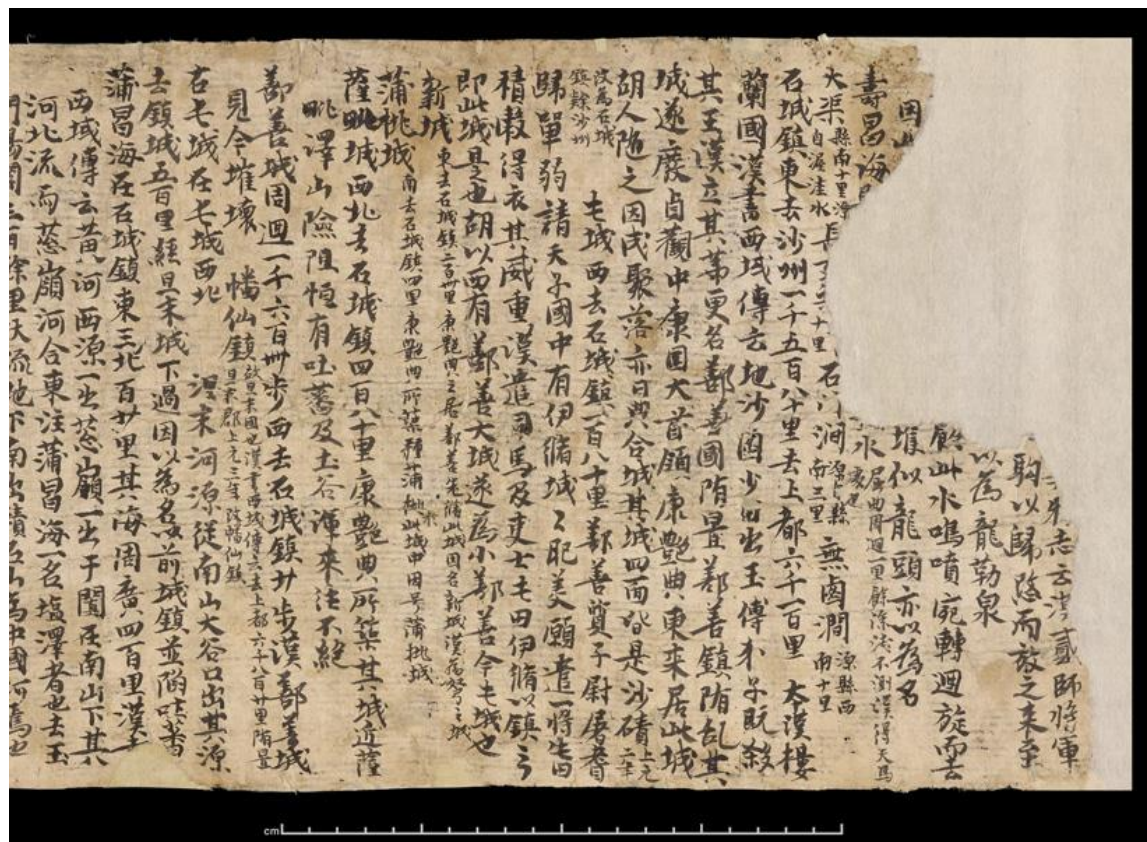 志云漢貳師將軍
駒以歸愍而放之來至
以為龍勒泉
餘此水鳴噴宛轉週旋而去
堆似龍頭亦以為名
壽昌海水屈曲周迴一里餘深淺不測漢得天馬處也
大渠縣南十里源自渥洼水長一里五十里石門澗源出縣南三里無鹵澗源縣西南十里
石城鎮東去沙州一千五百八十里去上都六千一百里本漢樓
蘭國漢書西域傳云地沙鹵少田出玉傅介子既殺
其王漢立其弟更名鄯善國隋置鄯善鎮隋亂其
城遂廢貞觀中康國大首領康艷典東來居此城
胡人隨之因成聚落亦曰典合城其城四面皆是沙磧上元二年
改為石城鎮隸沙州屯城西去石城鎮一百八十里鄯善質子尉屠耆
歸單弱請天子國中有伊脩城々肥美願遣一將屯田
積穀得衣其威重漢遣司馬及吏士屯田伊脩以鎮之
即此城是也胡以西有鄯善大城遂為小鄯善今屯城也
新城東去石城鎮二百卌里康艷典之居鄯善先脩此城因名新城漢為弩之城
蒲桃城南去石城鎮四里康艷典所築種蒲桃此城中因号蒲桃城
薩毗城西北去石城鎮四百八十里康艷典所築其城近薩
毗澤山險阻恒有吐蕃及土谷渾來往不絕
鄯善城周迴一千六百卌步西去石城鎮廿步漢鄯善城
見今摧壞幡仙鎮故且末國也漢書西域傳云去上都六千八百廿里隋置且末郡上元三年改幡仙鎮
古屯城在屯城西北沮末河源從南山大谷口出其源
去鎮城五百里經且末城下過因以為名以前城鎮並陷吐蕃
蒲昌海在石城鎮東三北百廿里其海周廣四百里漢書
西域傳云黃河西源一出葱嶺一出于闐在南山下其
河北流而葱嶺河合東注蒲昌海一名塩澤者也去玉
門陽關三百餘里伏流地下南出積石山為中國河焉也
cm